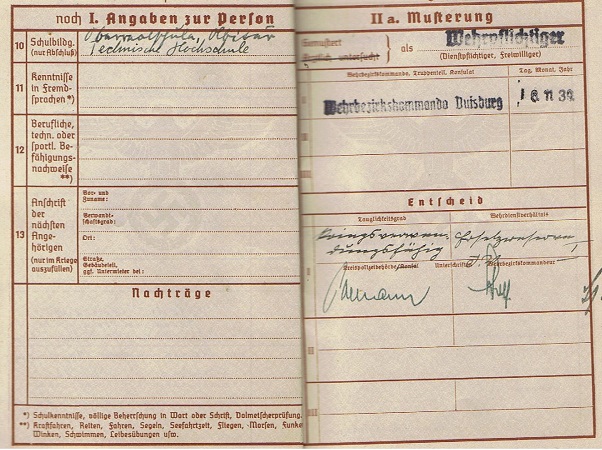 noch I. Angaben zur Person
10 Schulbildg. (nur Abschluß)
Oberrealschule, Abitur
Technische Hochschule
11 Kenntnisse in Fremdsprachen *)
12 Berufliche, techn. oder sportl. Befähigungsnachweise **)
13 Anschrift der nächsten Angehörigen (nur im Kriege auszufüllen)
Vor- und Zuname:
Verwandtschaftsgrad:
Ort:
Straße, Gebäudeteil, ggf. Untermieter bei:
Nachträge
*) Schulkenntnisse, völlige Beherrschung in Wort oder Schrift, Dolmetscherprüfung.
**) Kraftfahren, Reiten, Fahren, Segeln, Seefahrtzeit, Fliegen, Morsen, Funke
Winken, Schwimmen, Leibesübungen usw.
II a. Musterung
Gemustert
als Wehrpflichtiger
(Dienstpflichtiger, Freiwilliger)
Wehrbezirkskommando, Truppenteil, Konsulat
Tag, Monat, Jahr
I
Wehrbezirkskommando Duisburg
II
Entscheid
Tauglichkeitsgrad
Wehrdienstverhältnis
kriegsverwen-
dungsfähig
Ersatzreserve I
Kreispolizeibehörde/Konsul
Unterschriften
Wehrbezirkskommandeur
III